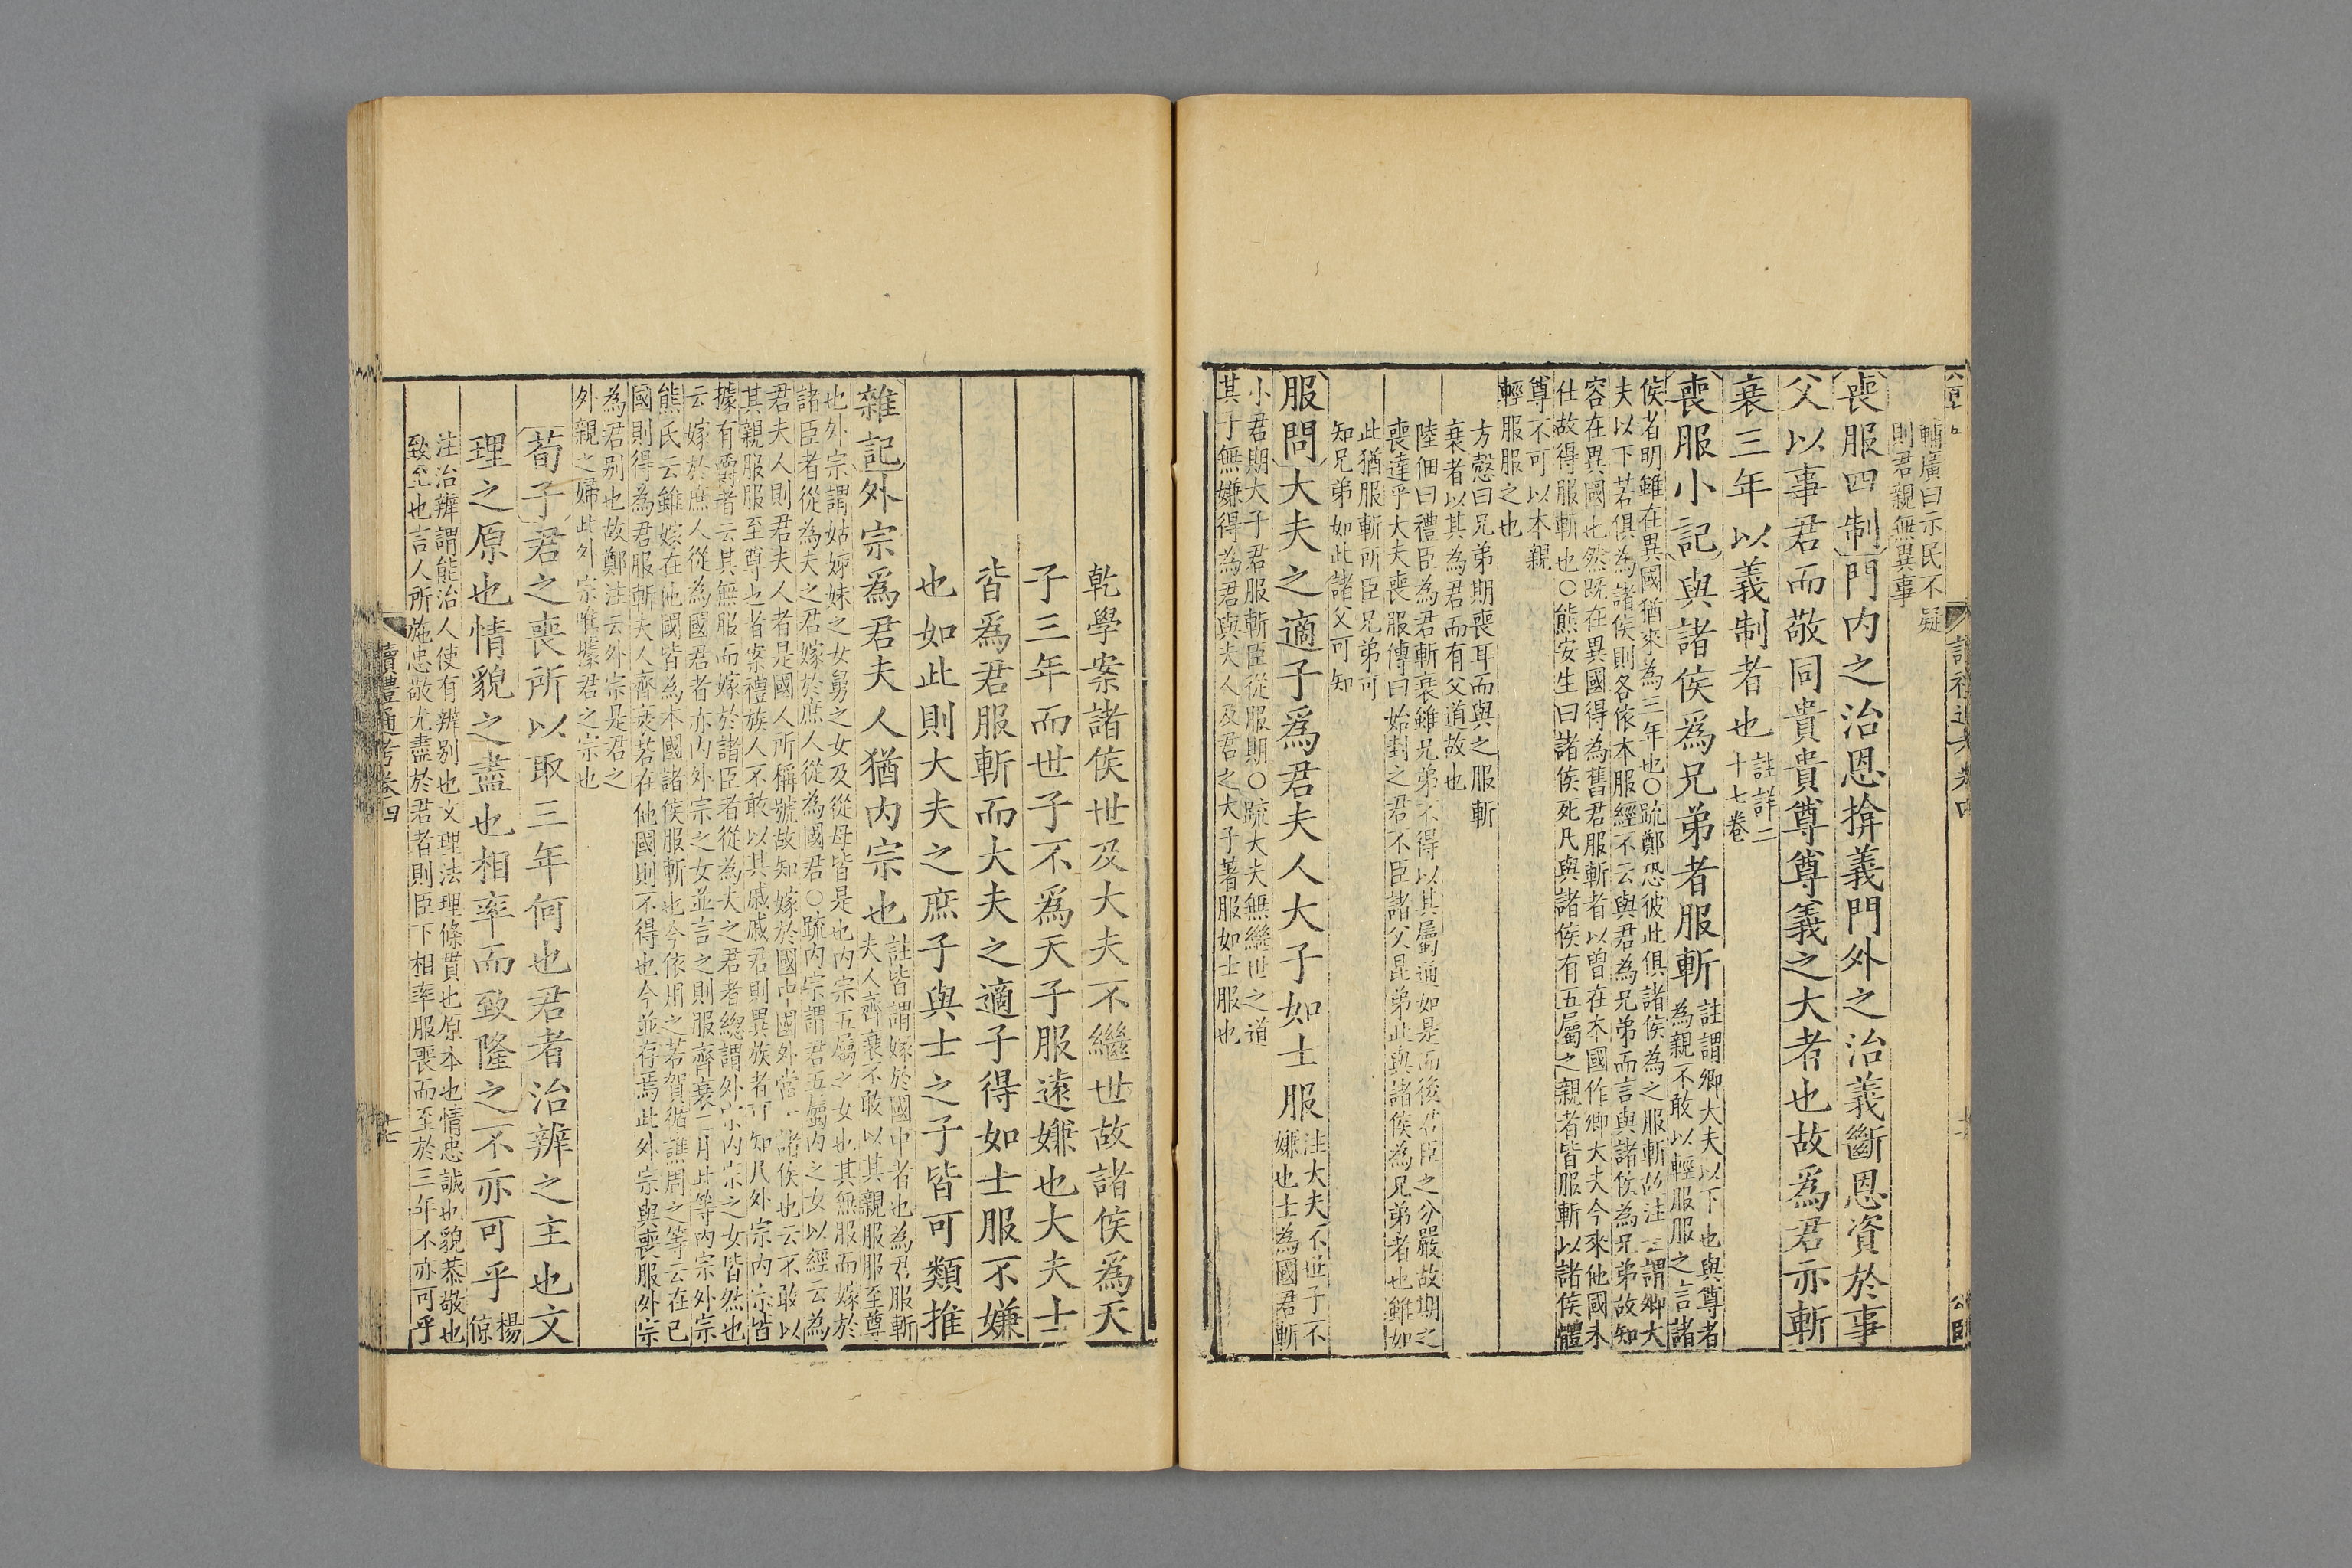 輔廣曰示民不疑
則君親無異事
喪服四制門内之治恩揜義門外之治義斷恩資於事
父以事君而敬同貴貴尊尊義之大者也故爲君亦斬
衰三年以義制者也
註詳二
十七卷
喪服小記與諸侯爲兄弟者服斬
註謂卿大夫以下也與尊者
為親不敢以輕服服之言諸
侯者明雖在異國猶來為三年也○疏鄭恐彼此俱諸侯為之服斬故注云謂卿大
夫以下若俱為諸侯則各依本服經不云與君為兄弟而言與諸侯為兄弟故知
容在異國也然既在異國得為舊君服斬者以曾在本國作卿大夫今來他國未
仕故得服斬也○熊安生曰諸侯死凡與諸侯有五屬之親者皆服斬以諸侯體
尊不可以本親
輕服服之也
方愨曰兄弟期喪耳而與之服斬
衰者以其為君而有父道故也
陸佃曰禮臣為君斬衰雖兄弟不得以其屬通如是而後君臣之分嚴故期之
喪達乎大夫喪服傳曰始封之君不臣諸父昆弟此與諸侯為兄弟者也雖如
此猶服斬所臣兄弟可
知兄弟如此諸父可知
服問大夫之適子爲君夫人大子如士服
注大夫不世子不
嫌也士為國君斬
小君期大子君服斬臣從服期○疏大夫無繼世之道
其子無嫌得為君與夫人及君之大子著服如士服也
乾學案諸侯世及大夫不繼世故諸侯爲天
子三年而世子不爲天子服遠嫌也大夫士
皆爲君服斬而大夫之適子得如士服不嫌
也如此則大夫之庶子與士之子皆可類推
雜記外宗爲君夫人猶内宗也
註皆謂嫁於國中者也為君服斬
夫人齊衰不敢以其親服服至尊
也外宗謂姑姊妹之女舅之女及從母皆是也内宗五屬之女也其無服而嫁於
諸臣者從為夫之君嫁於庶人從為國君○疏内宗謂君五屬内之女以經云為
君夫人則君夫人者是國人所稱號故知嫁於國中國外當云諸侯也云不敢以
其親服服至尊也者案禮族人不敢以其戚戚君則異族者可知凡外宗内宗皆
據有爵者云其無服而嫁於諸臣者從為夫之君者總謂外宗内宗之女皆然也
云嫁於庶人從為國君者亦内外宗之女並言之則服齊衰三月此等内宗外宗
熊氏云雖嫁在他國皆為本國諸侯服斬也今依用之若賀循譙周之等云在己
國則得為君服斬夫人齊衰若在他國則不得也今並存焉此外宗與喪服外宗
為君別也故鄭注云外宗是君之
外親之婦此外宗唯據君之宗也
荀子君之喪所以取三年何也君者治辨之主也文
理之原也情貌之盡也相率而致隆之不亦可乎
楊
倞
注治辨謂能治人使有辨别也文理法理條貫也原本也情忠誠也貌恭敬也
致至也言人所施忠敬尤盡於君者則臣下相率服喪而至於三年不亦可乎
讀禮通考卷四
七